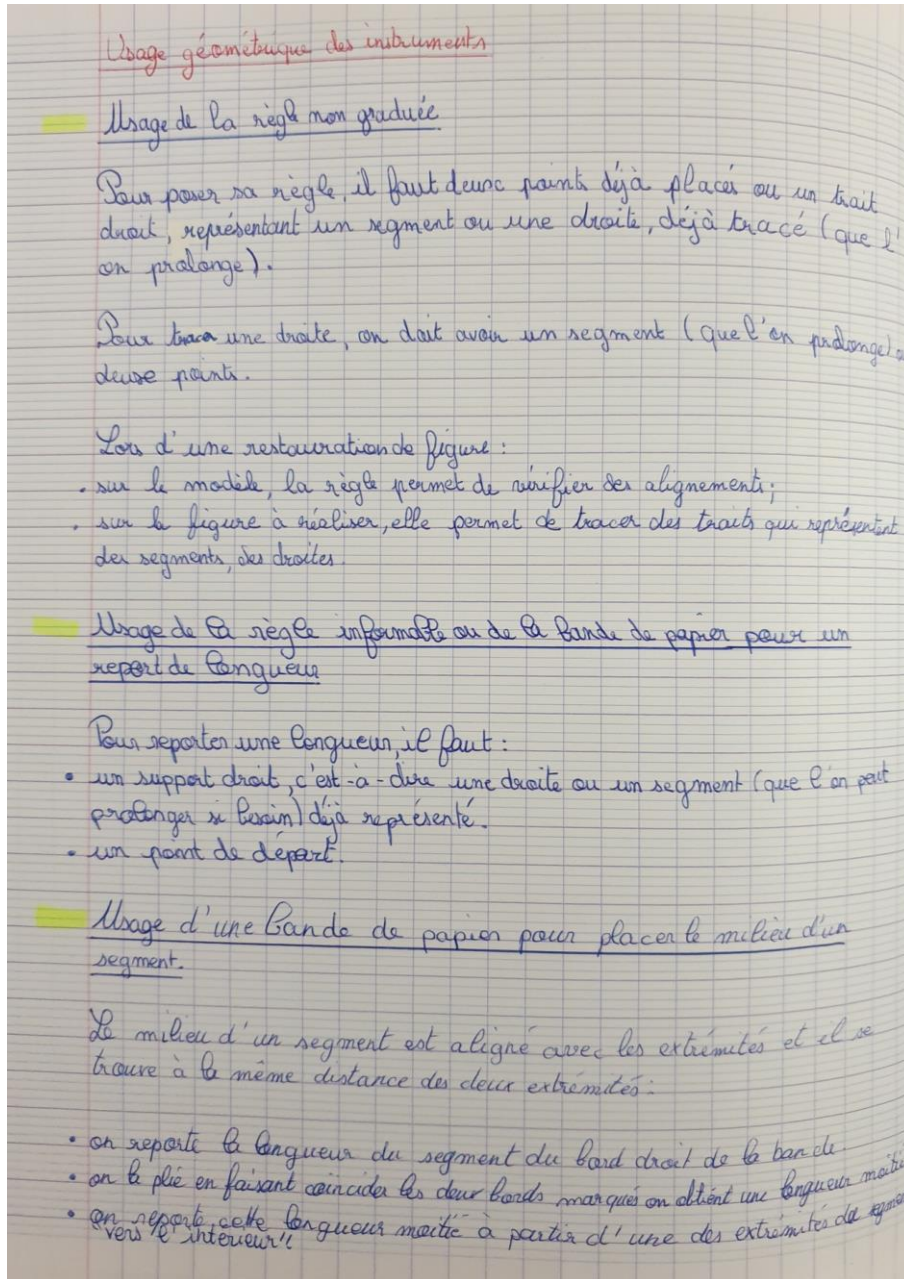 Usage géométrique des instruments
Usage de la règle non graduée
Pour poser sa règle, il faut deux points déjà placés ou un trait
droit, représentant un segment ou une droite, déjà tracé (que l'
on prolonge).
Pour tracer une droite, on doit avoir un segment (que l'on prolonge)
deux points.
Lors d'une restauration de figure :
• sur le modèle, la règle permet de vérifier des alignements ;
• sur la figure à réaliser, elle permet de tracer des traits qui représentent
des segments, des droites.
Usage de la règle informable ou de la bande de papier pour un
report de longueur
Pour reporter une longueur, il faut :
• un support droit, c'est-à-dire une droite ou un segment (que l'on peut
prolonger si besoin) déjà représenté.
• un point de départ.
Usage d'une bande de papier pour placer le milieu d'un
segment.
Le milieu d'un segment est aligné avec les extrémités et il se
trouve à la même distance des deux extrémités.
• on reporte la longueur du segment du bord droit de la bande.
• on la plie en faisant coincider les deux bords marqués on obtient une longueur moitié
• on reporte cette longueur moitié à partir d'une des extrémités du
vers l'intérieur"